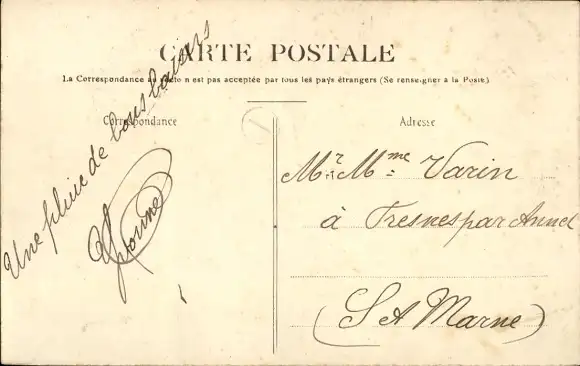 CARTE POSTALE
La Correspondance au recto n'est pas acceptée par tous les pays étrangers (Se renseigner à la Poste)
Correspondance
Adresse
Une pluie de bons baisers
Yvonne
Mr & Mme Varin
à Fresnes par Annet
(S et Marne)